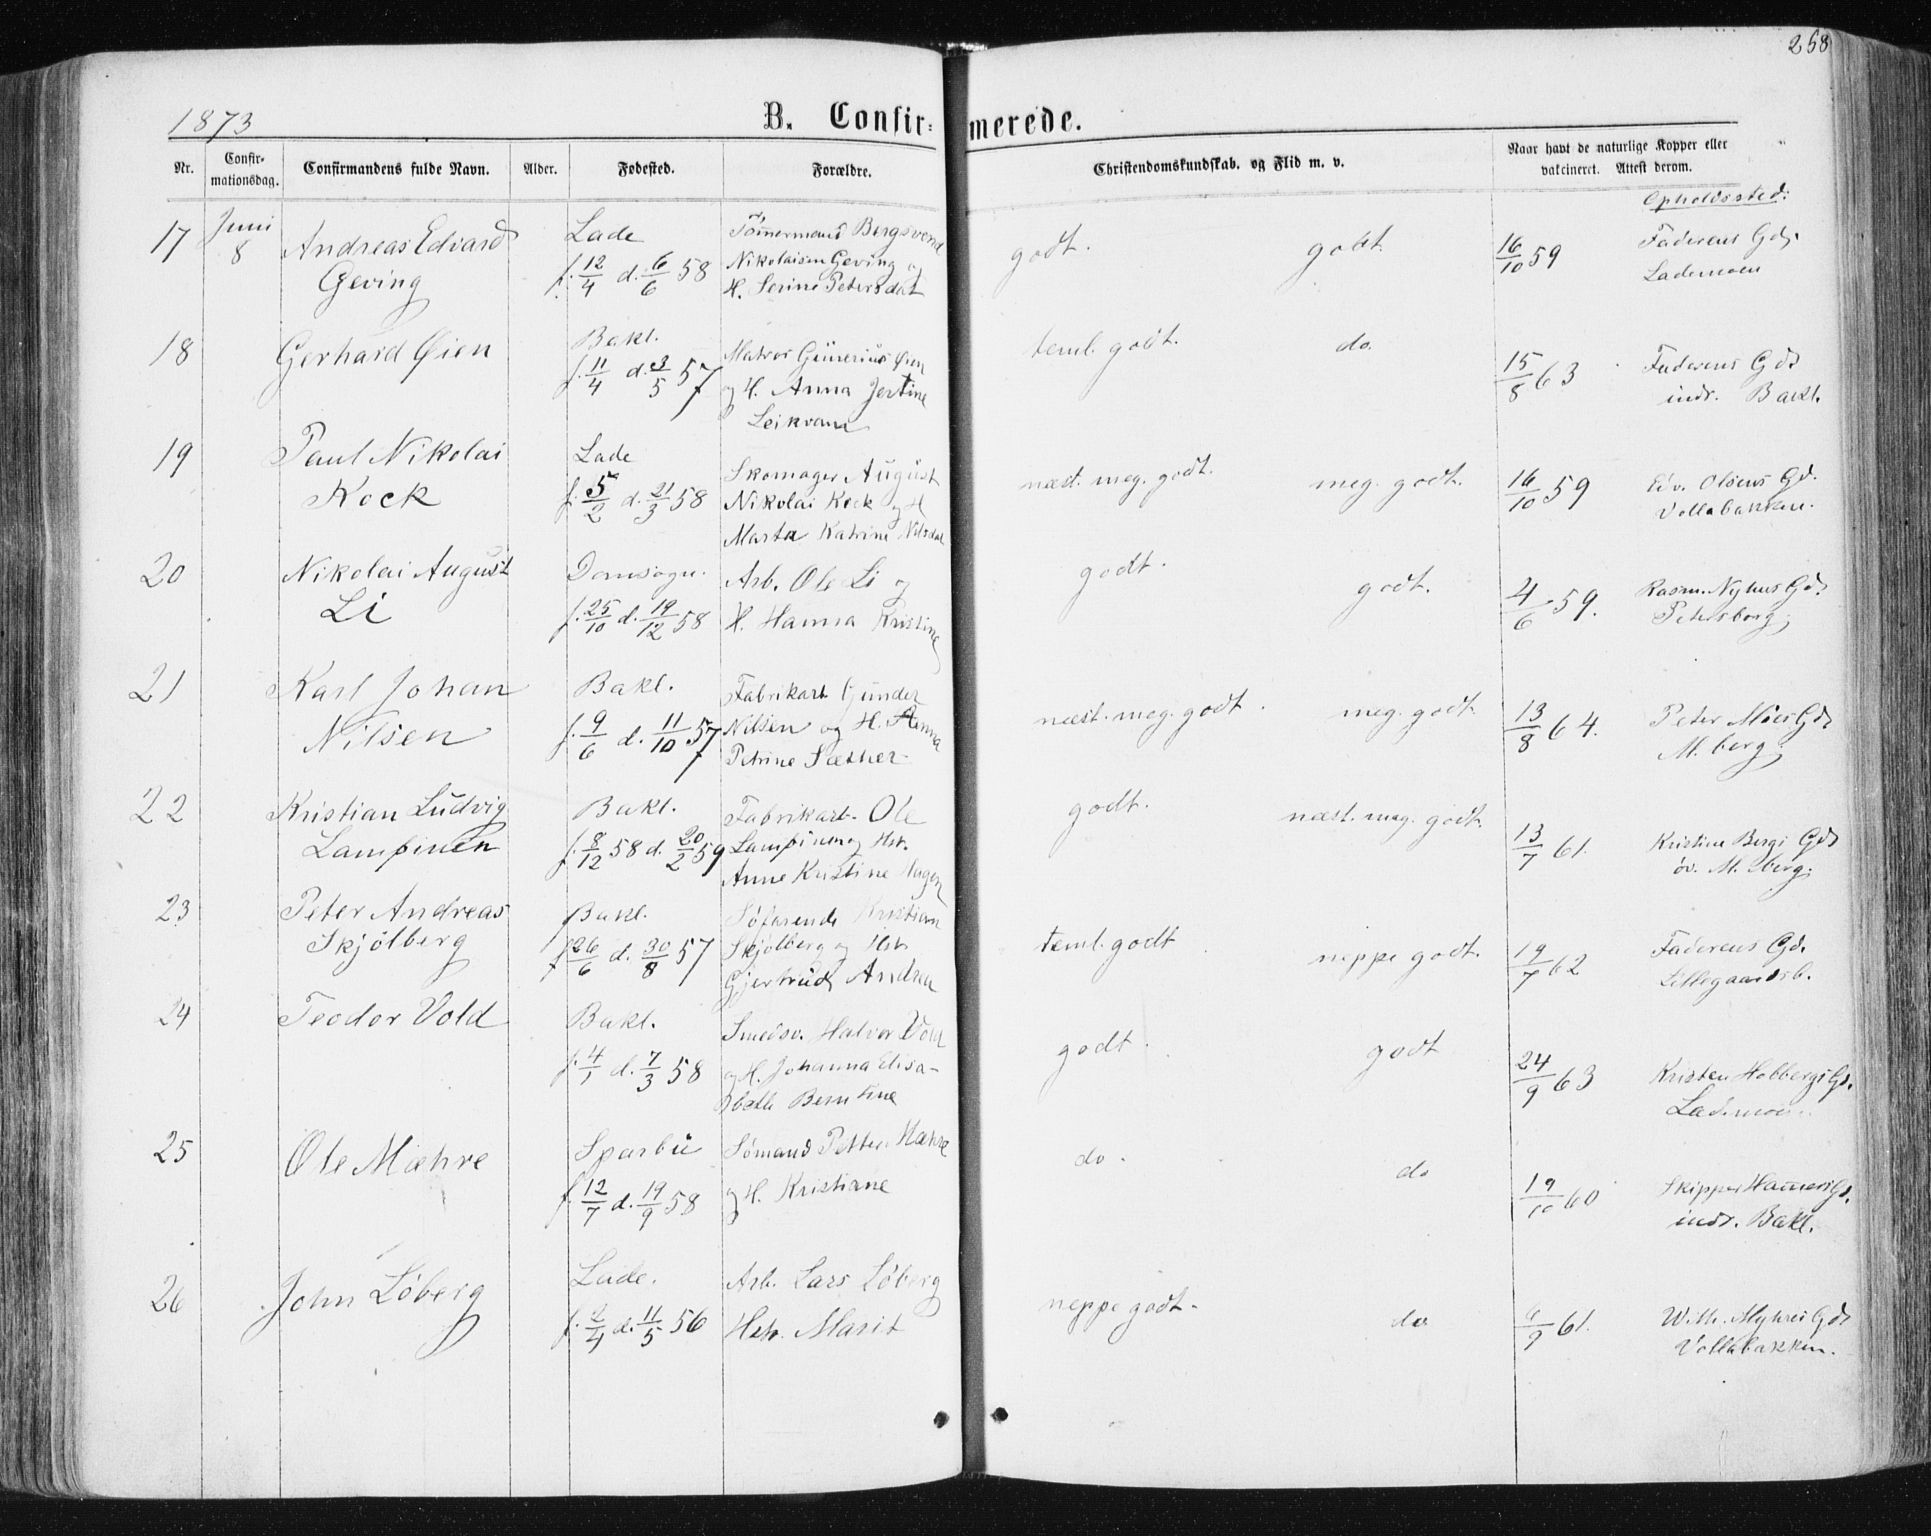 258
1873
B. Confir-
merede.
Nr.
Confir-
mationsdag.
Confirmandens fulde Navn.
Alder.
Fødested.
Forældre.
Christendomskundskab. og Flid m. v.
Naar havt de naturlige Kopper eller
vakcineret. Attest derom.
Opholdssted:
17 Juni 8 Andreas Edvard Lade Tömermand Bergsvend godt. godt. 16/10 59 Faderens Gd.
Geving f. 12/4 d. 6/6 58 Nikolaisen Geving og Lademoen
H. Serine Petersdat
18 Gerhard Øien Bakl. Matros Gunerius Øien teml. godt. do. 15/8 63 Faderens Gd
f. 11/4 d. 3/5 57 og H. Anna Jertine indr. Bakl.
Leikvam
19 Paul Nikolai Lade Skomager August næst. meg. godt. meg. godt. 16/10 59 Edv. Olsens Gd.
Kock f. 5/2 d. 21/3 58 Nikolai Kock og H Vollabakken.
Marta Katrine Nilsdat
20 Nikolai August Domsogn. Arb. Ole Li og godt. godt. 4/6 59. Rasm. Nyhus Gd.
Li f. 25/10 d. 19/12 58 H. Hanna Kristine Petersborg
21 Karl Johan Bakl. Fabrikarb Gunder næst. meg. godt. meg. godt. 13/8 64. Peter Moes Gd
Nilsen f. 9/6 d. 11/10 57 Nilsen og H. Anna M. berg
Petrine Sæther
22 Kristian Ludvig Bakl. Fabrikarb. Ole godt. næst. meg. godt. 13/7 61. Kristine Bergs Gd
Lampinen f. 8/12 58 d. 20/2 59 Lampinen og Hst. øv. M. berg.
Anne Kristine
23 Peter Andreas Bakl. Söfarende Kristian teml. godt neppe godt. 19/7 62 Faderens Gd.
Skjölberg f 26/6 d. 30/8 57 Skjölberg og Hst. Lillegaardsb.
Gjertrud Andrea
24 Teodor Vold Bakl. Smedsv. Halvor Vold godt. godt 24/9 63 Kristen Holbergs Gd.
f. 4/1 d. 7/3 58 og H. Johanna Elisa- Lademoen
beth Berntine
25 Ole Mæhre Sparbu Sömand Petter Mæhre do. do 19/10 60 Skipper Hamers Gd.
f. 12/7 d. 19/9 58 og H. Kristiane indr. Bakl.
26 John Löberg Lade. Arb. Lars Löberg neppe godt. do 6/9 61. Wilh. Myhres Gd
f. 2/4 d. 11/5 56 Hst. Marit Vollabakken.